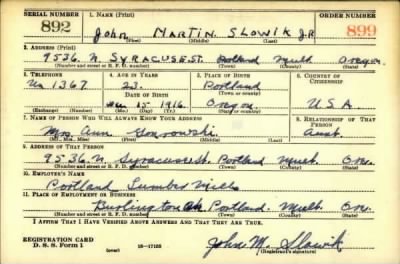 SERIAL NUMBER 1. NAME (Print) ORDER NUMBER
892 John MARTIN. SLOWIK JR 899
(First) (Middle) (Last)
2. ADDRESS (Print)
9536. N. SYRACUSE.ST. Portland Mult Oregon
(Number and street or R. F. D. number) (Town) (County) (State)
3. TELEPHONE 4. AGE IN YEARS 5. PLACE OF BIRTH 6. COUNTRY OF CITIZENSHIP
Un 1367 23. Portland
DATE OF BIRTH (Town or county)
15 1916 Oregon U.S.A
(Exchange) (Number) (Mo.) (Day) (Yr.) (State or country)
7. NAME OF PERSON WHO WILL ALWAYS KNOW YOUR ADDRESS 8. RELATIONSHIP OF THAT PERSON
Mrs. Ann Aunt.
(Mr., Mrs., Miss) (First) (Middle) (Last)
9. ADDRESS OF THAT PERSON
9536. N. Syracuse st. Portland Mult. Ore.
(Number and street or R. F. D. number) (Town) (County) (State)
10. EMPLOYER'S NAME
Portland Lumber Mills
11. PLACE OF EMPLOYMENT OR BUSINESS
Burlington Portland. Mult. Ore.
(Number and street or R. F. D. number) (Town) (County) (State)
I AFFIRM THAT I HAVE VERIFIED ABOVE ANSWERS AND THAT THEY ARE TRUE.
REGISTRATION CARD
D. S. S. Form 1 (over) 16-17105 John M. Slowik
(Registrant's signature)